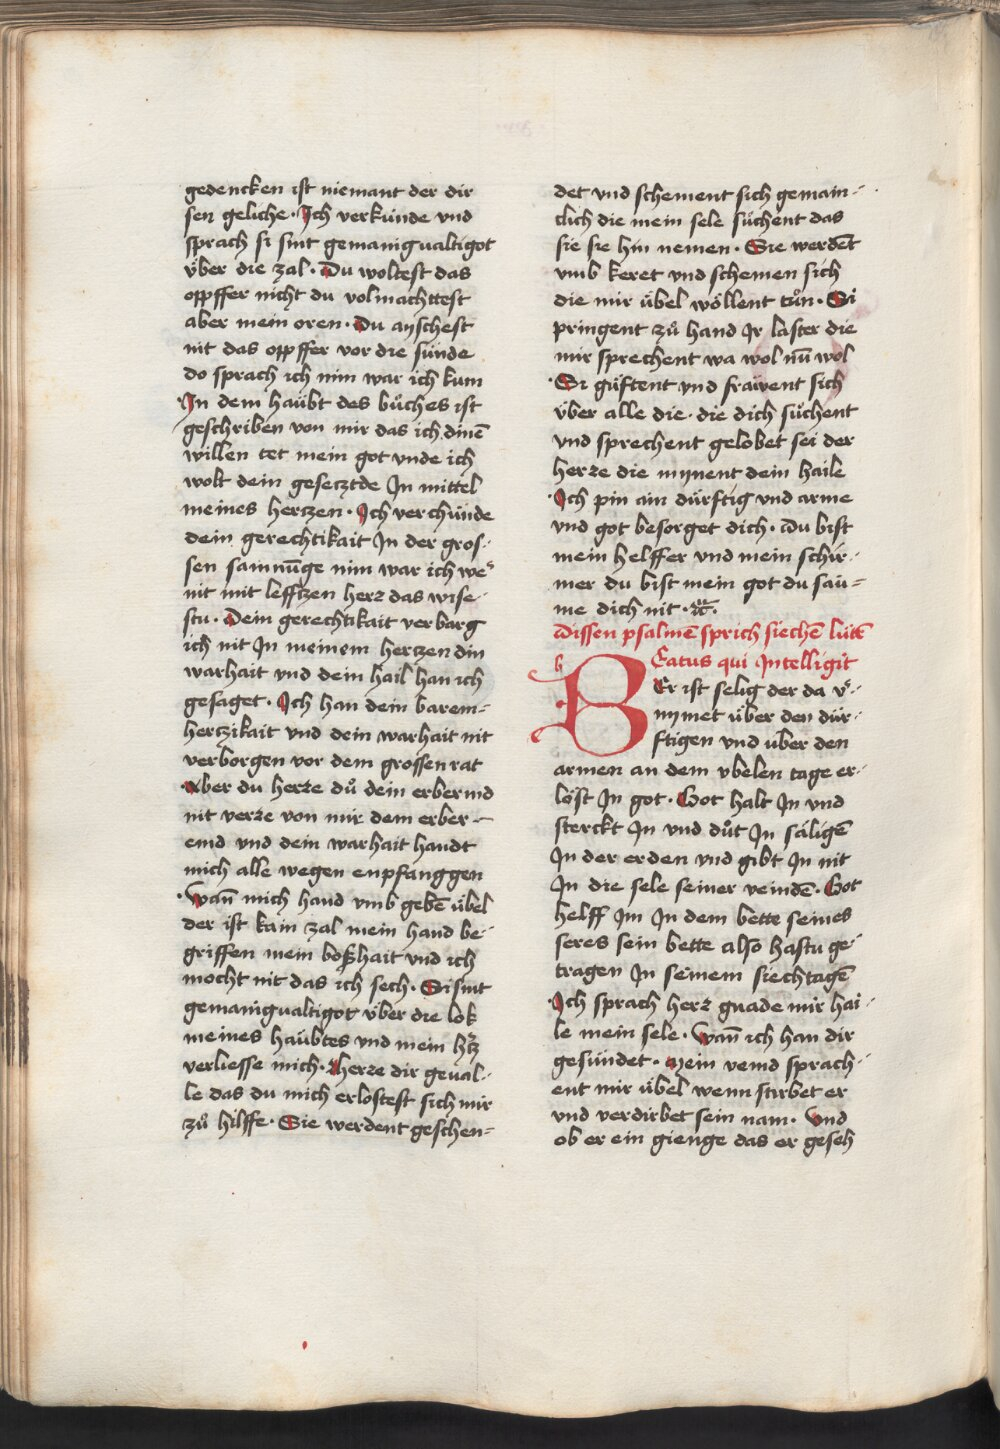 gedencken ist niemant der dir
sen geliche · Ich verkunde vnd
sprach si sint gemanigualtigot
v̈ber die zal · Du woltest das
oppffer nicht du volmachttest
aber mein oren · Du ayschest
nit das oppffer vor die sünde
do sprach ich nim war ich kum
· In dem haübt des bůches ist
geschriben von mir das ich dinē
willen tet mein got vnde ich
wolt dein gesecztde In mittel
meines herczen · Ich verchünde
dein gerechtikait In der gros-
sen samnūge nim war ich we
nit mit lefftzen herz das wise-
stu · Dein gerechtikait verbarg
ich nit In meinem herczen din
warhait vnd dein hail han ich
gesaget · Ich han dein barem-
hertzikait vnd dein warhait nit
verborgen vor dem grossen rat
· Aber du herze dů dein erbermd
nit verze von mir dem erber-
emd vnd dein warhait handt
mich alle wegen enpfanggen
· Wan̄ mich hand vmb gebē übel
der ist kain zal mein hand be-
griffen mein boßhait vnd ich
mocht nit das ich sech · Si sint
gemanigualtigot v̈ber die lok
meines haübtes vnd mein htz
verliesse mich · Herze dir geual-
le das du mich erlostest sich mir
zů hilffe · Sie werdent geschen-
det vnd schement sich gemain-
clich die mein sele süchent das
sie sie hin nemen · Sie werdēt
vmb keret vnd schemen sich
die mir übel wöllent tůn · Si
pringent zů hand Ir laster die
mir sprechent wa wol nū wol
· Si güftent vnd fräwent sich
v̈ber alle die · die dich sůchent
vnd sprechent gelobet sei der
herze die mynent dein haile
· Ich pin ain dürftig vnd arme
vnd got besorget dich · du bist
mein helffer vnd mein schir-
mer du bist mein got du säu-
me dich nit ·
Dissen psalmē sprich siechē lütē
BEatus qui Intelligit
Er ist selig der da v-
nymet über den dür-
ftigen vnd über den
armen an dem vbelen tage er-
löst In got · Got halt In vnd
sterckt In vnd důt In säligē
In der erden vnd gibt In nit
In die sele seiner veindē · Got
helff Im In dem bette seines
seres sein bette also hastu ge-
tragen In seinem siechtagē
· Ich sprach herz gnade mir hai-
le mein sele · Wan̄ ich han dir
gesündet · Mein veind sprach-
ent mir übel wenn stirbet er
vnd verdirbet sein nam · Vnd
ob er ein gienge das er geseh